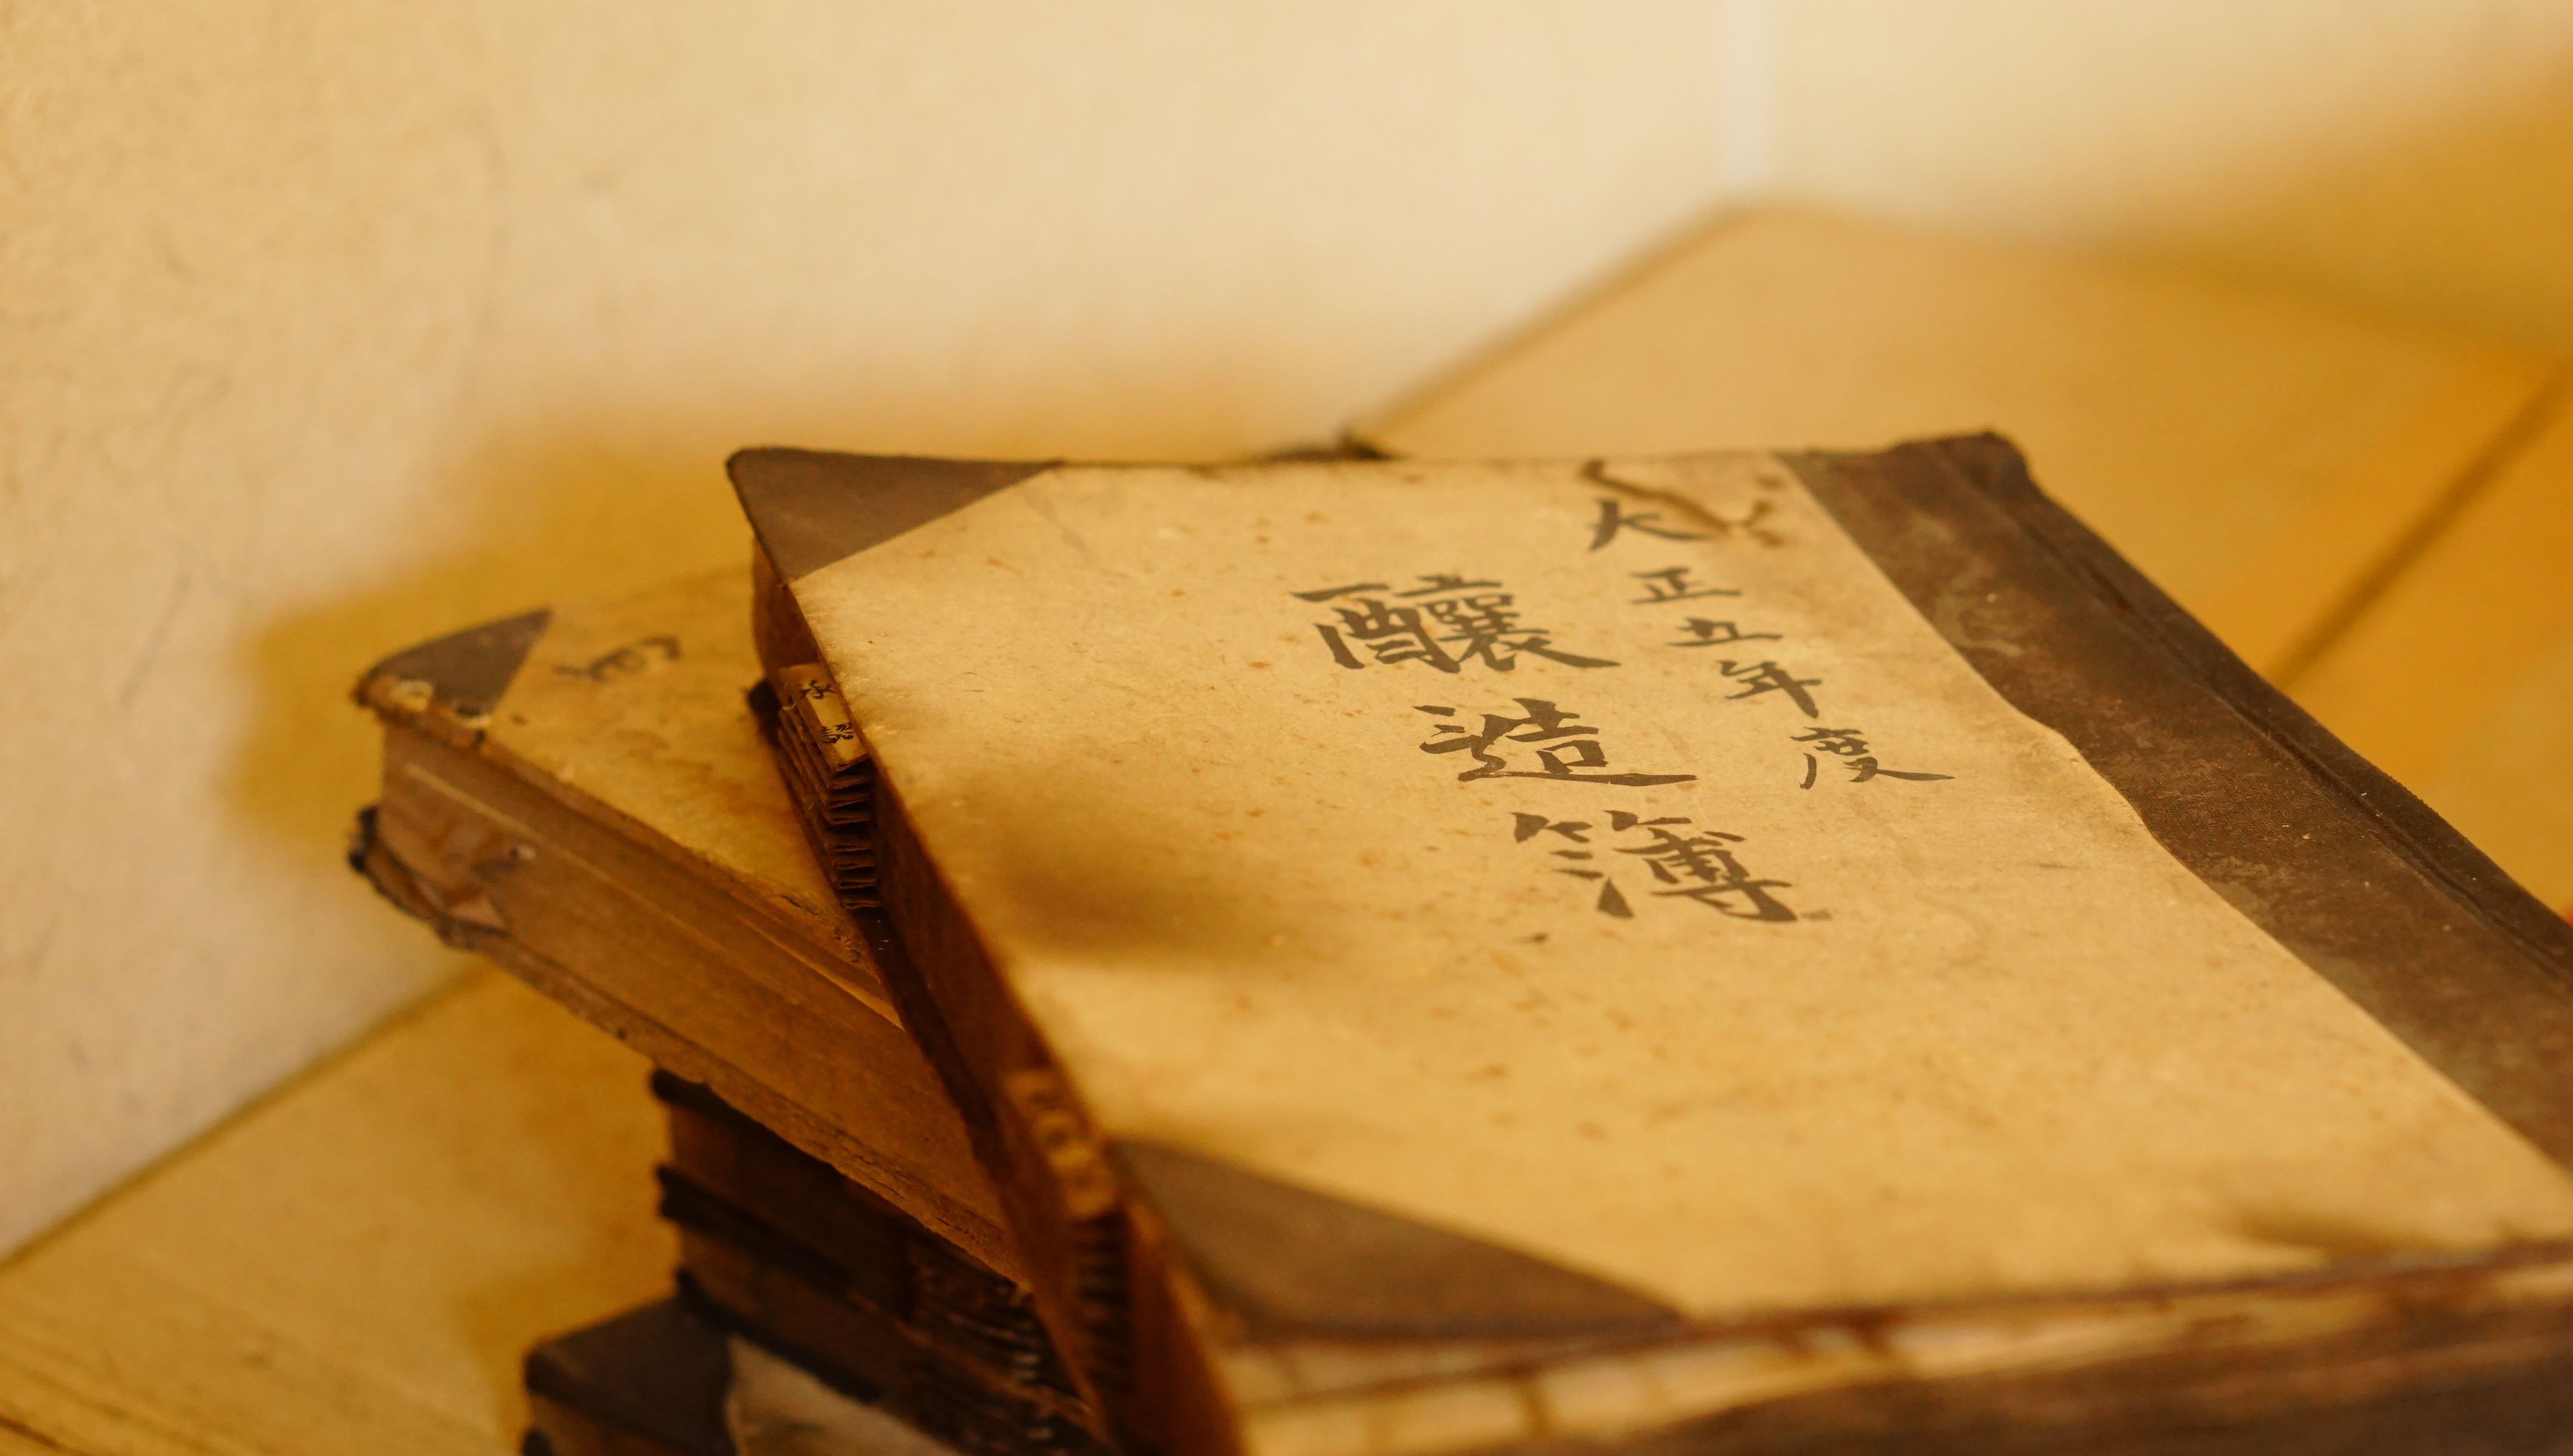 大正五年度
釀造簿